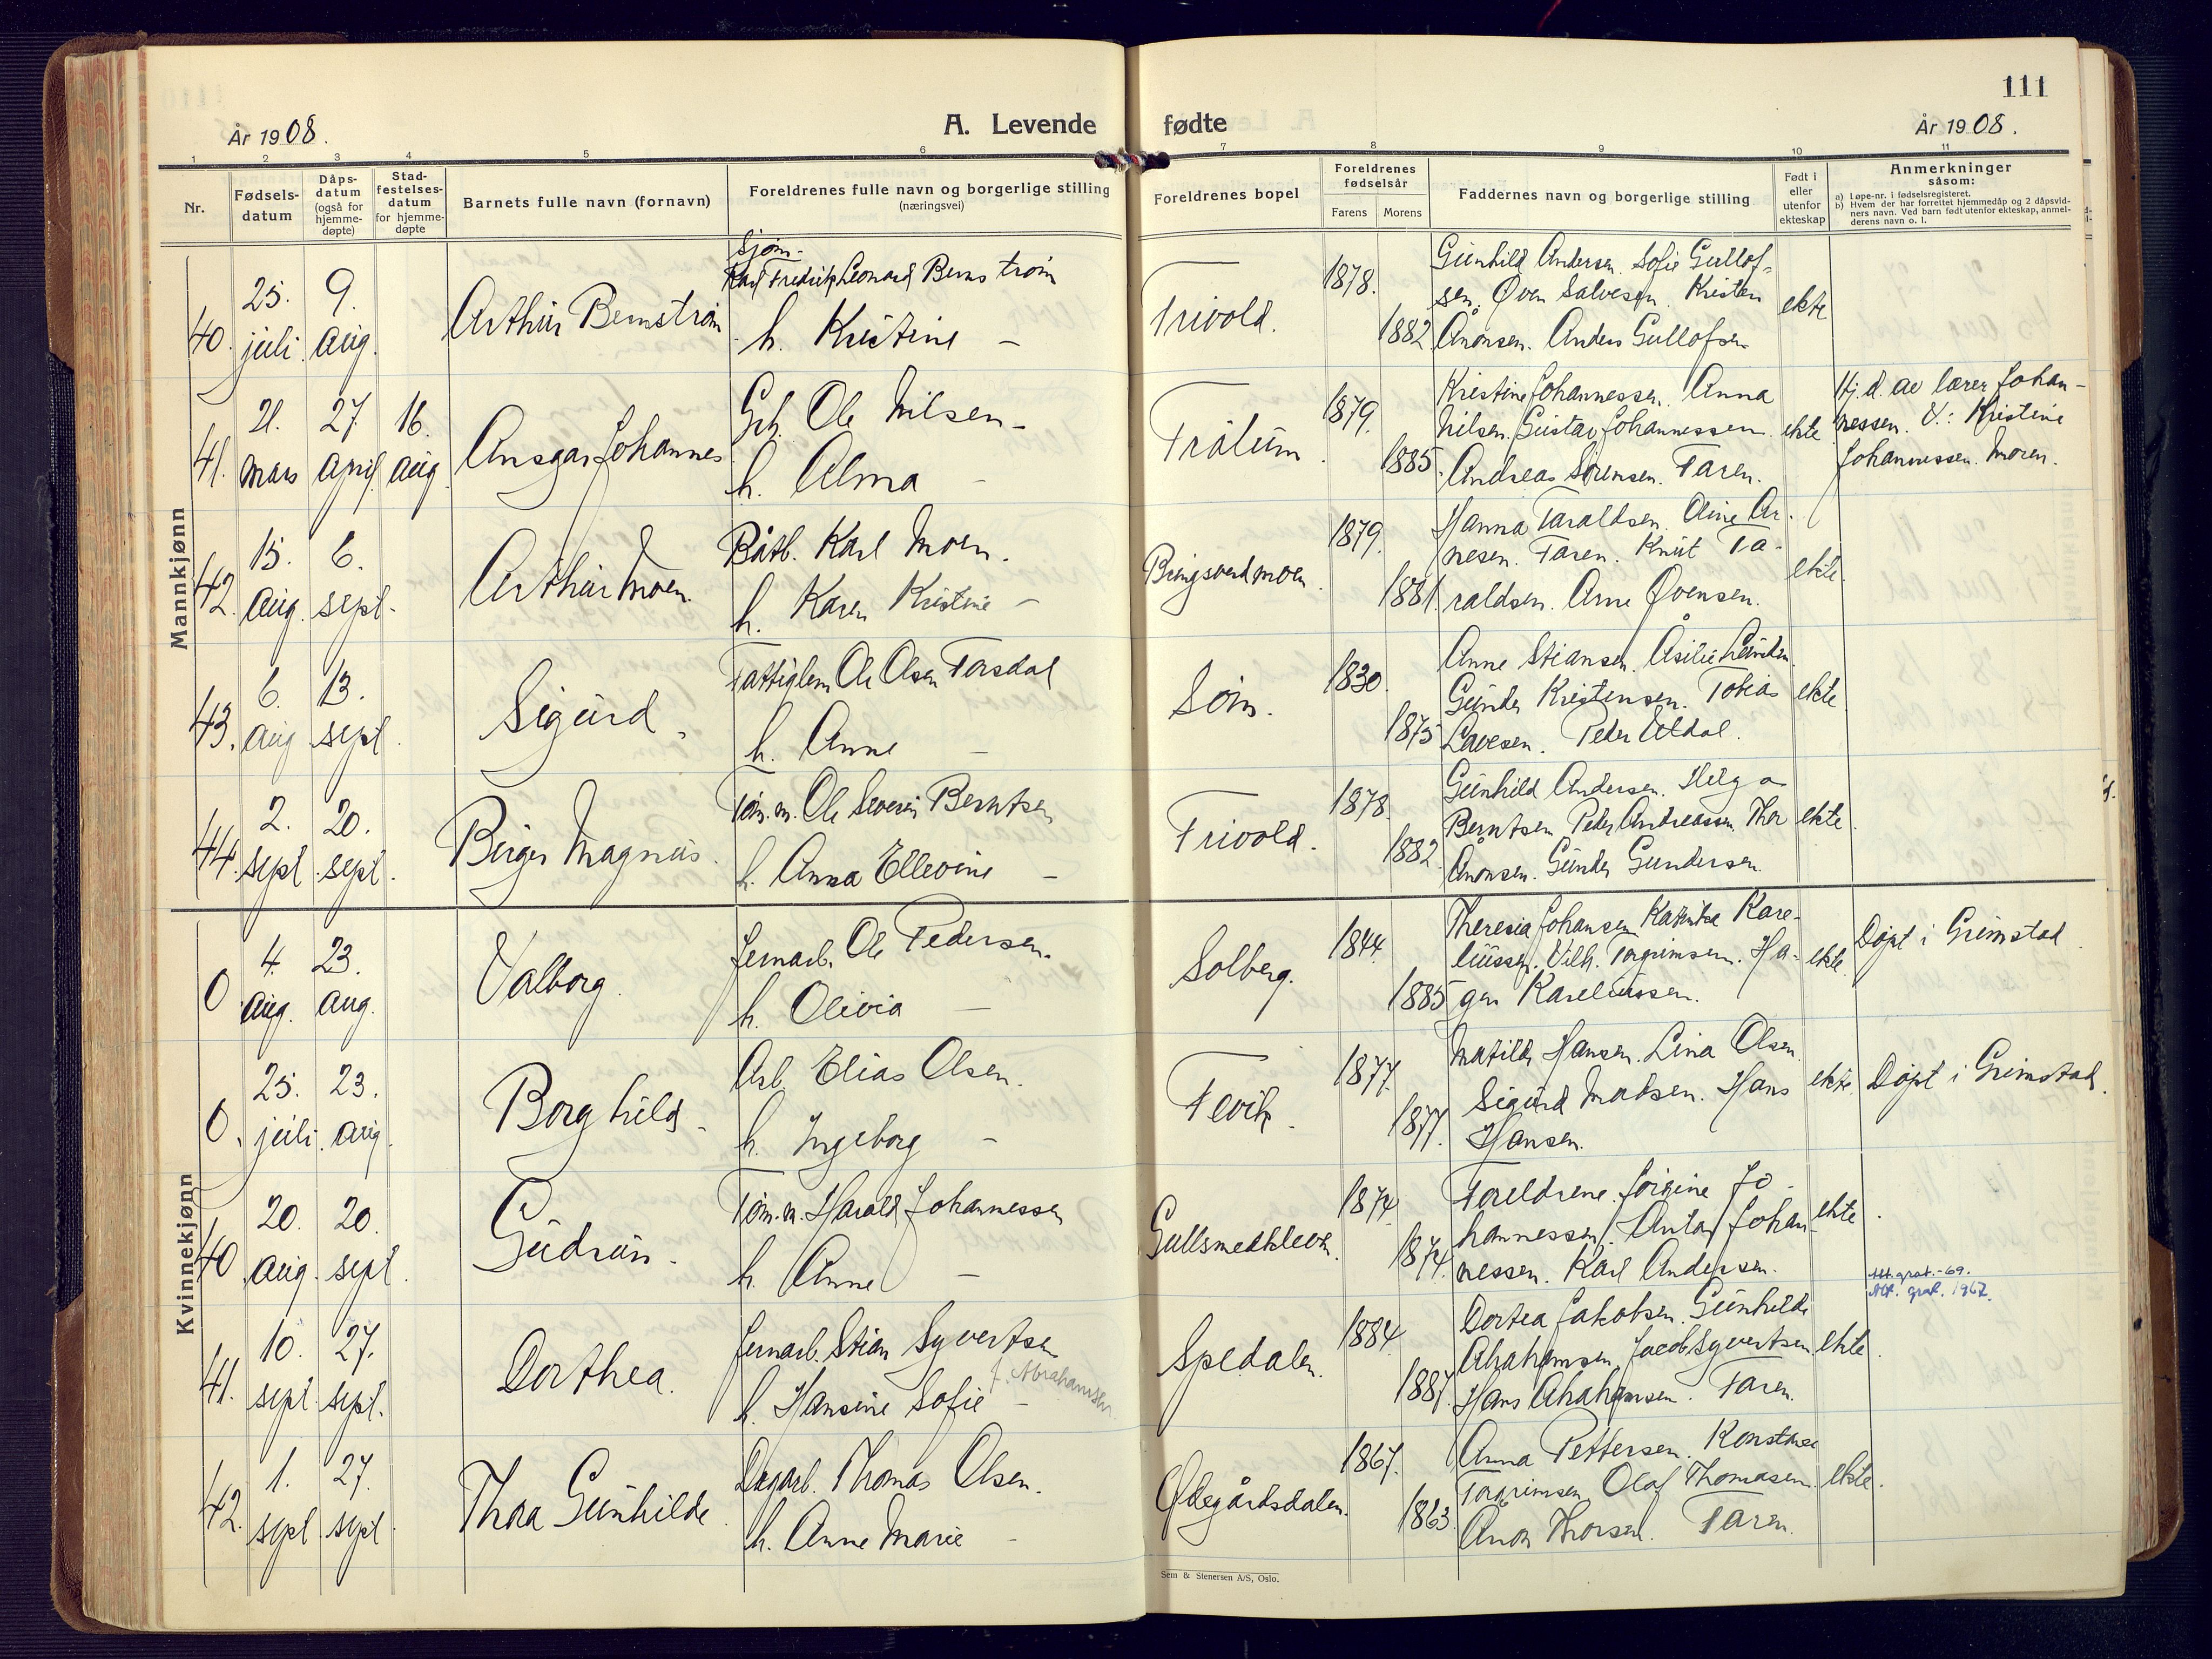 111
År 1908.
A. Levende
fødte
År 1908.
1 2 3 4 5 6 7 8 9 10 11
Nr.
Fødsels-
datum
Dåps-
datum
(også for
hjemme-
døpte)
Stad-
festelses-
datum
for hjemme-
døpte
Barnets fulle navn (fornavn)
Foreldrenes fulle navn og borgerlige stilling
(næringsvei)
Foreldrenes bopel
Foreldrenes
fødselsår
Farens Morens
Faddernes navn og borgerlige stilling
Født i
eller
utenfor
ekteskap
Anmerkninger
såsom:
a) Løpe-nr. i fødselsregisteret.
b) Hvem der har forrettet hjemmedåp og 2 dåpsvid-
ners navn. Ved barn født utenfor ekteskap, anmel-
derens navn o. l.
Mannkjønn
40. 25. juli 9. aug.
Arthur Bernstrøm
Sjøm.
Karl Fredrik Leonard Bernstrøm
h. Kristine —
Frivold.
1878.
1882
Gunhild Andersen. Sofie Gullof-
sen. Øven Salvesen. Kristen
Ånonsen. Anders Gullofsen
ekte
41. 21. mars 27. april 16. aug
Ansgar Johannes
Ole Nilsen —
h. Alma —
Frålum
1879.
1885.
Kristine Johannessen. Anna
Nilsen. Gustav Johannessen.
Andreas Sørensen. Faren.
ekte
Hj. d. av lærer Johan-
nessen. V.: Kristine
Johannessen. Moren.
42. 15. aug. 6. sept.
Arthur Moen.
Båtb. Karl Moen.
h. Karen Kristine —
Bringsverdmoen.
1879.
1881.
Hanna Taraldsen. Oline Ar-
nesen. Faren. Knut Ta-
raldsen. Arne Øvensen.
ekte.
43. 6. aug 13. sept.
Sigurd.
Fattiglem Ole Olsen Torsdal
h. Anne —
Søm.
1830.
1875
Anne Stiansen. Åsilie
Gunder Kristensen. Tobias
Lavesen. Peder Uldal.
ekte
44. 2. sept 20. sept.
Birger Magnus.
Tøm.m. Ole Severin Berntsen
h. Anna Ellevine —
Frivold.
1878.
1882
Gunhild Andersen. Helga
Berntsen Peder Andreassen Ther
Ånonsen. Gunder Gundersen.
ekte.
Kvinnekjønn
0. 4. aug. 23. aug.
Valborg.
Jernarb. Ole Pedersen.
h. Olivia —
Solberg.
1844.
1885
Theresia Johansen Katinka Kare-
liussen. Vilh. Torgrimsen. Ha-
gen Kareliussen.
ekte.
Døpt i Grimstad
0. 25. juli. 23. aug.
Borghild.
Arb. Elias Olsen.
h. Ingeborg —
Fevik.
1877.
1877.
Matilde Hansen. Lina Olsen.
Sigurd Madsen. Hans
Hansen.
ekte.
Døpt i Grimstad.
40 20. aug. 20. sept.
Gudrun.
Tøm.m. Harald Johannessen
h. Anne —
Gullsmedkleven.
1874
1874.
Foreldrene. Jørgine Jo-
hannessen. Anton Johan-
nessen. Karl Andersen.
ekte.
Att. grat. -69.
Att. grat. 1967.
41. 10. sept. 27. sept.
Dorthea.
Jernarb. Stian Syvertsen
h. Hansine Sofie —
f. Abrahamsen.
Spedalen.
1884
1887.
Dortea Jakobsen. Gunhilde
Abahamsen, Jacob Syvertsen.
Hans Abahamsen. Faren.
ekte.
42. 1. sept. 27. sept.
Thea Gunhilde
Dagarb. Thomas Olsen.
h. Anne Marie —
Ødegårdsdalen.
1867.
1863.
Anna Pettersen. Konstanse
Torgrimsen Olaf Thomasen.
Anon Thorsen. Faren.
ekte.
Sem & Stenersen A/S, Oslo.